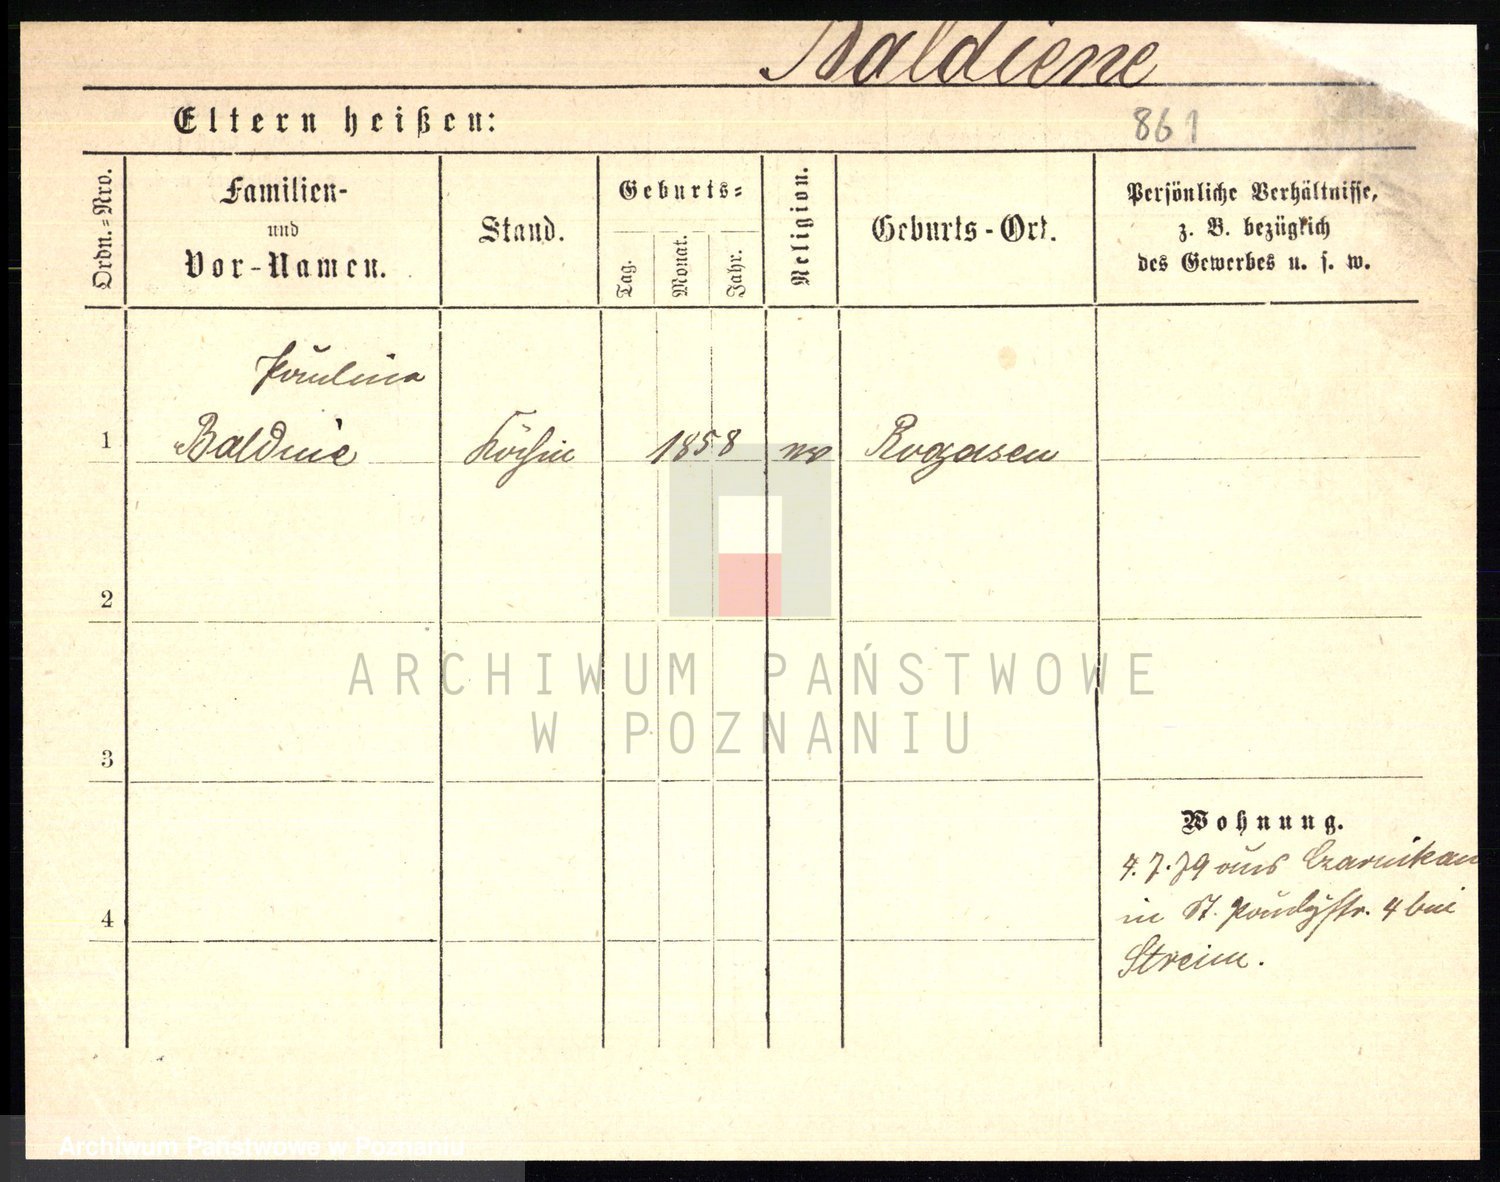 Baldiene
Eltern heißen:
861
Ordn.=Nro.
Familien-
und
Vor-Namen.
Stand.
Geburts=
Tag.
Monat.
Jahr.
Religion.
Geburts-Ort.
Persönliche Verhältnisse,
z. B. bezüglich
des Gewerbes u. s. w.
Paulina
1 Baldnie Köchin 1858 Rogasen
2
ARCHIWUM PAŃSTWOWE
W POZNANIU
3
Wohnung.
4.7.79 aus Czarnikau
in St. 4 bei
4
Streim.
Archiwum Państwowe w Poznaniu